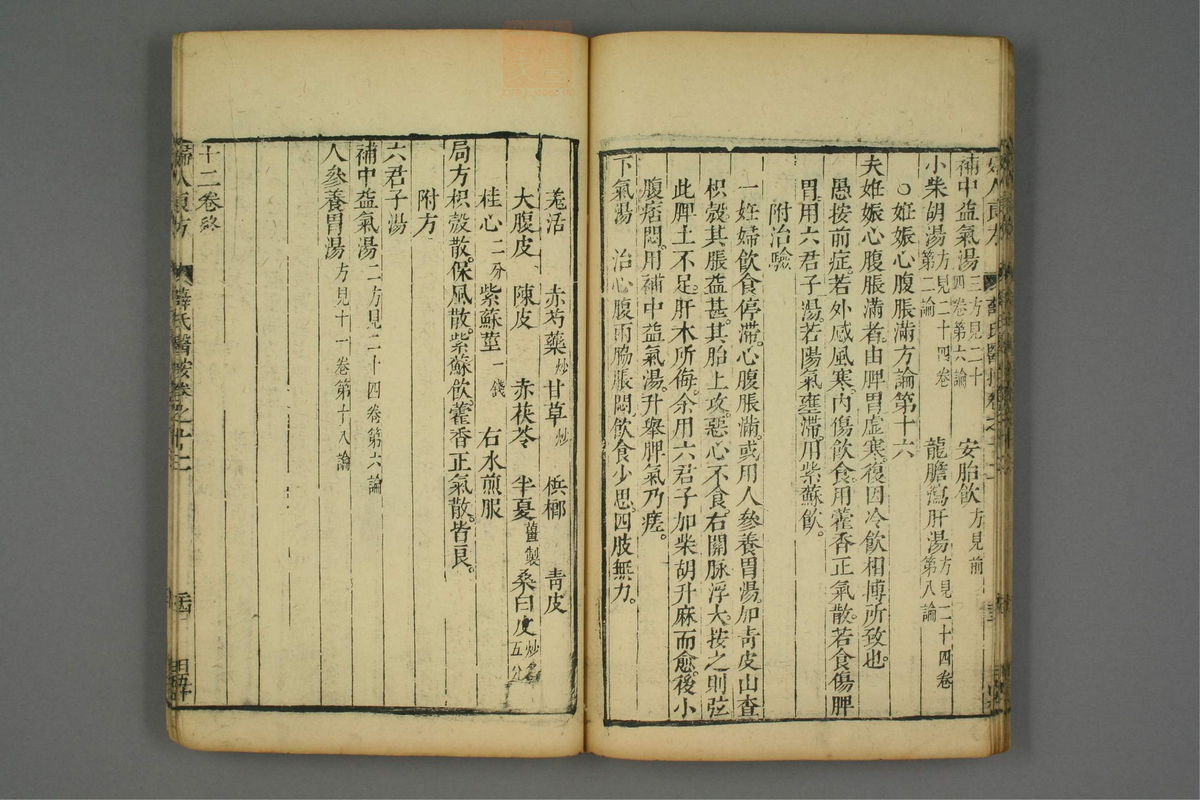 補中益氣湯三方見二十四卷第六論 安胎飲方見前
小柴胡湯方見二十四卷第二論 龍膽瀉肝湯方見二十四卷第八論
○妊娠心腹脹滿方論第十六
夫妊娠心腹脹滿者。由脾胃虛寒。復因冷飲相博所致也。
愚按前症。若外感風寒。內傷飲食。用藿香正氣散。若食傷脾
胃。用六君子湯。若陽氣壅滯。用紫蘇飲。
附治驗
一妊婦飲食停滯。心腹脹滿。或用人參養胃湯。加青皮山查
枳殼。其脹益甚。其胎上攻。惡心不食。右關脈浮大。按之則弦
此脾土不足。肝木所侮。余用六君子加柴胡升麻而愈。後小
腹痞悶。用補中益氣湯。升舉脾氣乃瘥。
下氣湯 治心腹兩脇脹悶。飲食少思。四肢無力。
羗活 赤芍藥炒 甘草炒 梹榔 青皮
大腹皮 陳皮 赤茯苓 半夏薑製 桑白皮炒各五分
桂心二分 紫蘇莖一錢 右水煎服
局方枳殼散。保風散。紫蘇飲。藿香正氣散。皆良。
附方
六君子湯
補中益氣湯二方見二十四卷第六論
人參養胃湯方見十一卷第十八論
十二卷終
婦人良方 薛氏醫按卷之十二